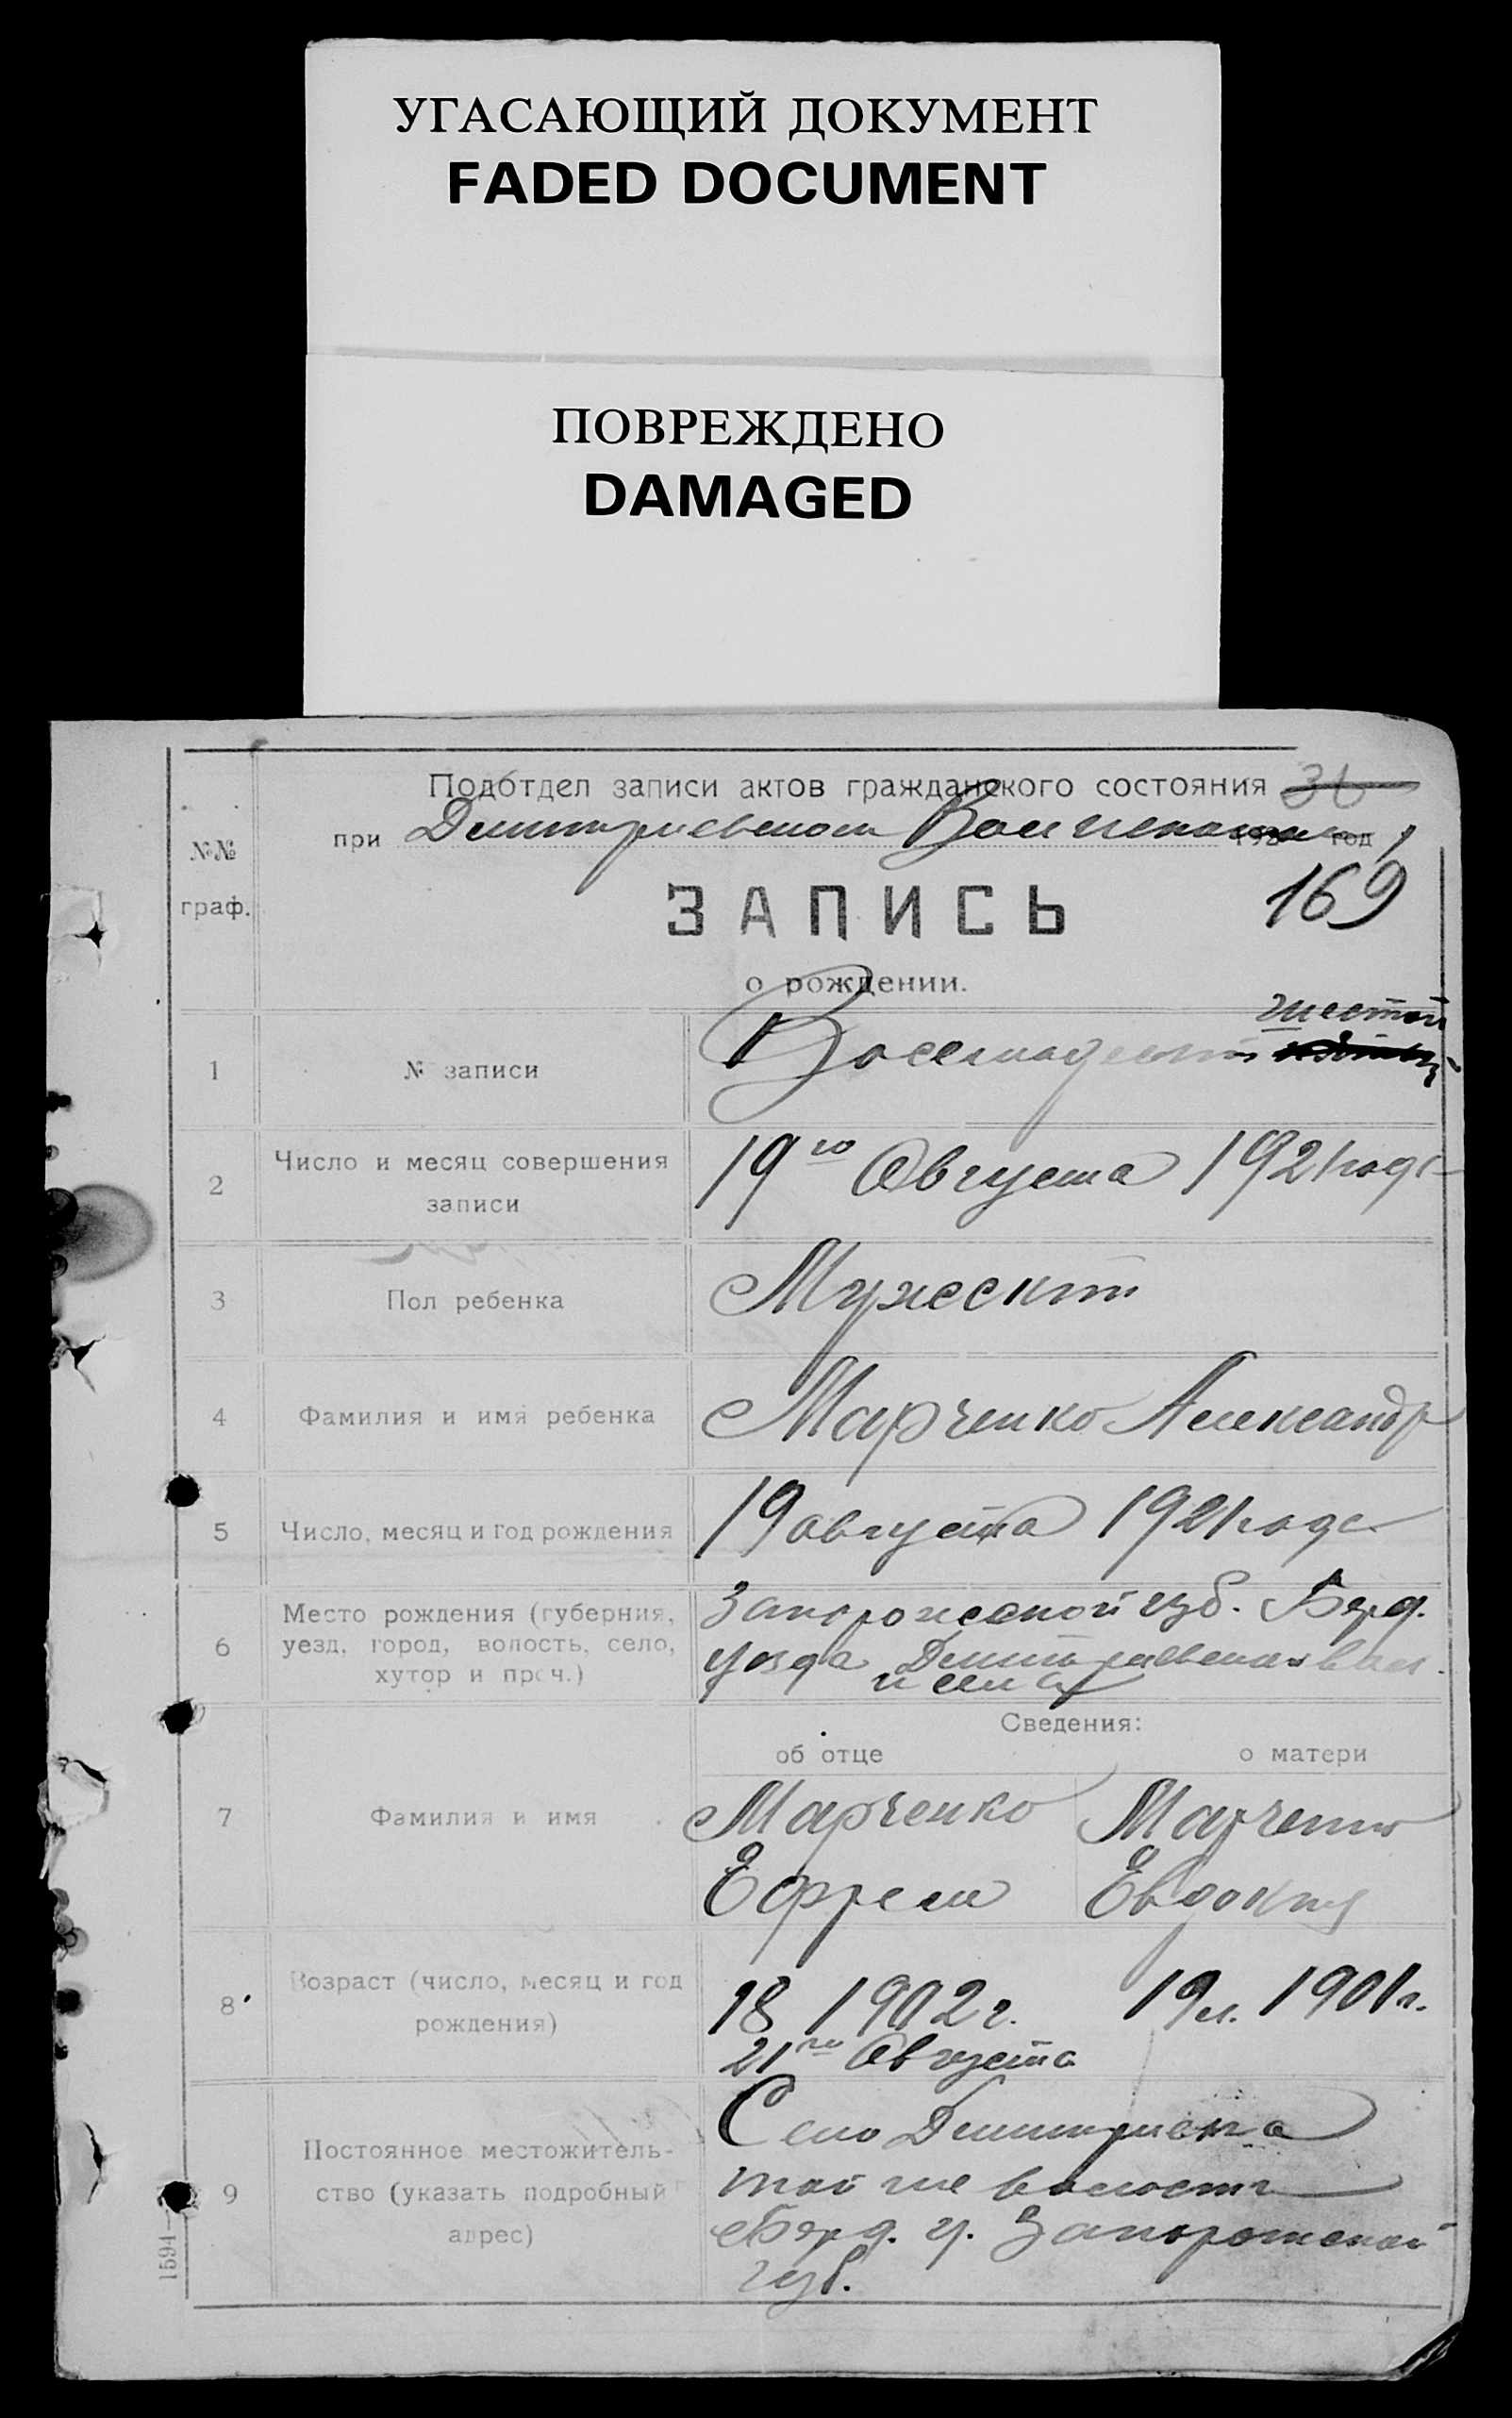 УГАСАЮЩИЙ ДОКУМЕНТ
FADED DOCUMENT
ПОВРЕЖДЕНО
DAMAGED
Подотдел записи актов гражданского состояния
при Дмитриевском 192 год
169
№№ граф.
ЗАПИСЬ
о рождении.
шестой
1 № записи Восемьдесят
2 Число и месяц совершения записи 19го Августа 1921 года
3 Пол ребенка Мужеский
4 Фамилия и имя ребенка Марченко Александр
5 Число, месяц и год рождения 19 августа 1921 года
6 Место рождения (губерния, Запорожской губ. Бэрд.
уезд, город, волость, село, уезда Дмитриевская вол.
хутор и проч.) и села
Сведения:
об отце о матери
7 Фамилия и имя Марченко Марченко
Ефрем Евдокия
8 Возраст (число, месяц и год рождения) 18 1902 г. 19 л. 1901 г.
21го Августа
9 Постоянное местожитель- Село Дмитриевка
ство (указать подробный той же волости
адрес) Бэрд. у. Запорожской
губ.
1594